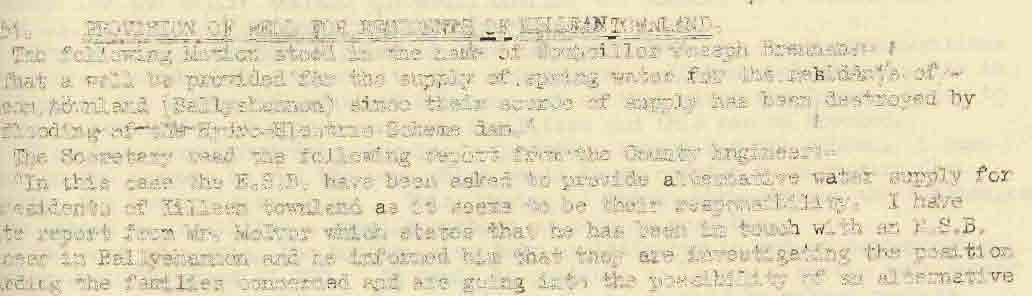 51. PROVISION OF WELL FOR RESIDENTS OF KILLEAN TOWNLAND.
The following Motion stood in the name of Councillor Joseph Brennan:-
That a well be provided for the supply of spring water for the residents of
townland (Ballyshannon) since their source of supply has been destroyed by
flooding of the Hydro-Electric Scheme dam."
The Secretary read the following report from the County Engineer:-
"In this case the E.S.B. have been asked to provide alternative water supply for
residents of Killean townland as it seems to be their responsibility. I have
report from Mr. McIvor which states that he has been in touch with an E.S.B.
in Ballyshannon and he informed him that they are investigating the position
the families concerned and are going into the possibility of an alternative